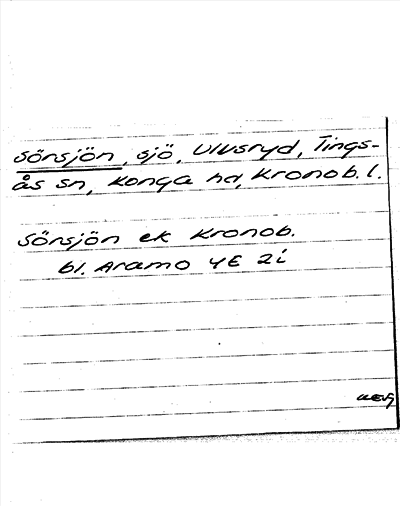 Sörsjön, sjö, Ulvsryd, Tings-
ås sn, Konga hd, Kronob. l.
Sörsjön ek Kronob.
bl. Aramo 4E 2i